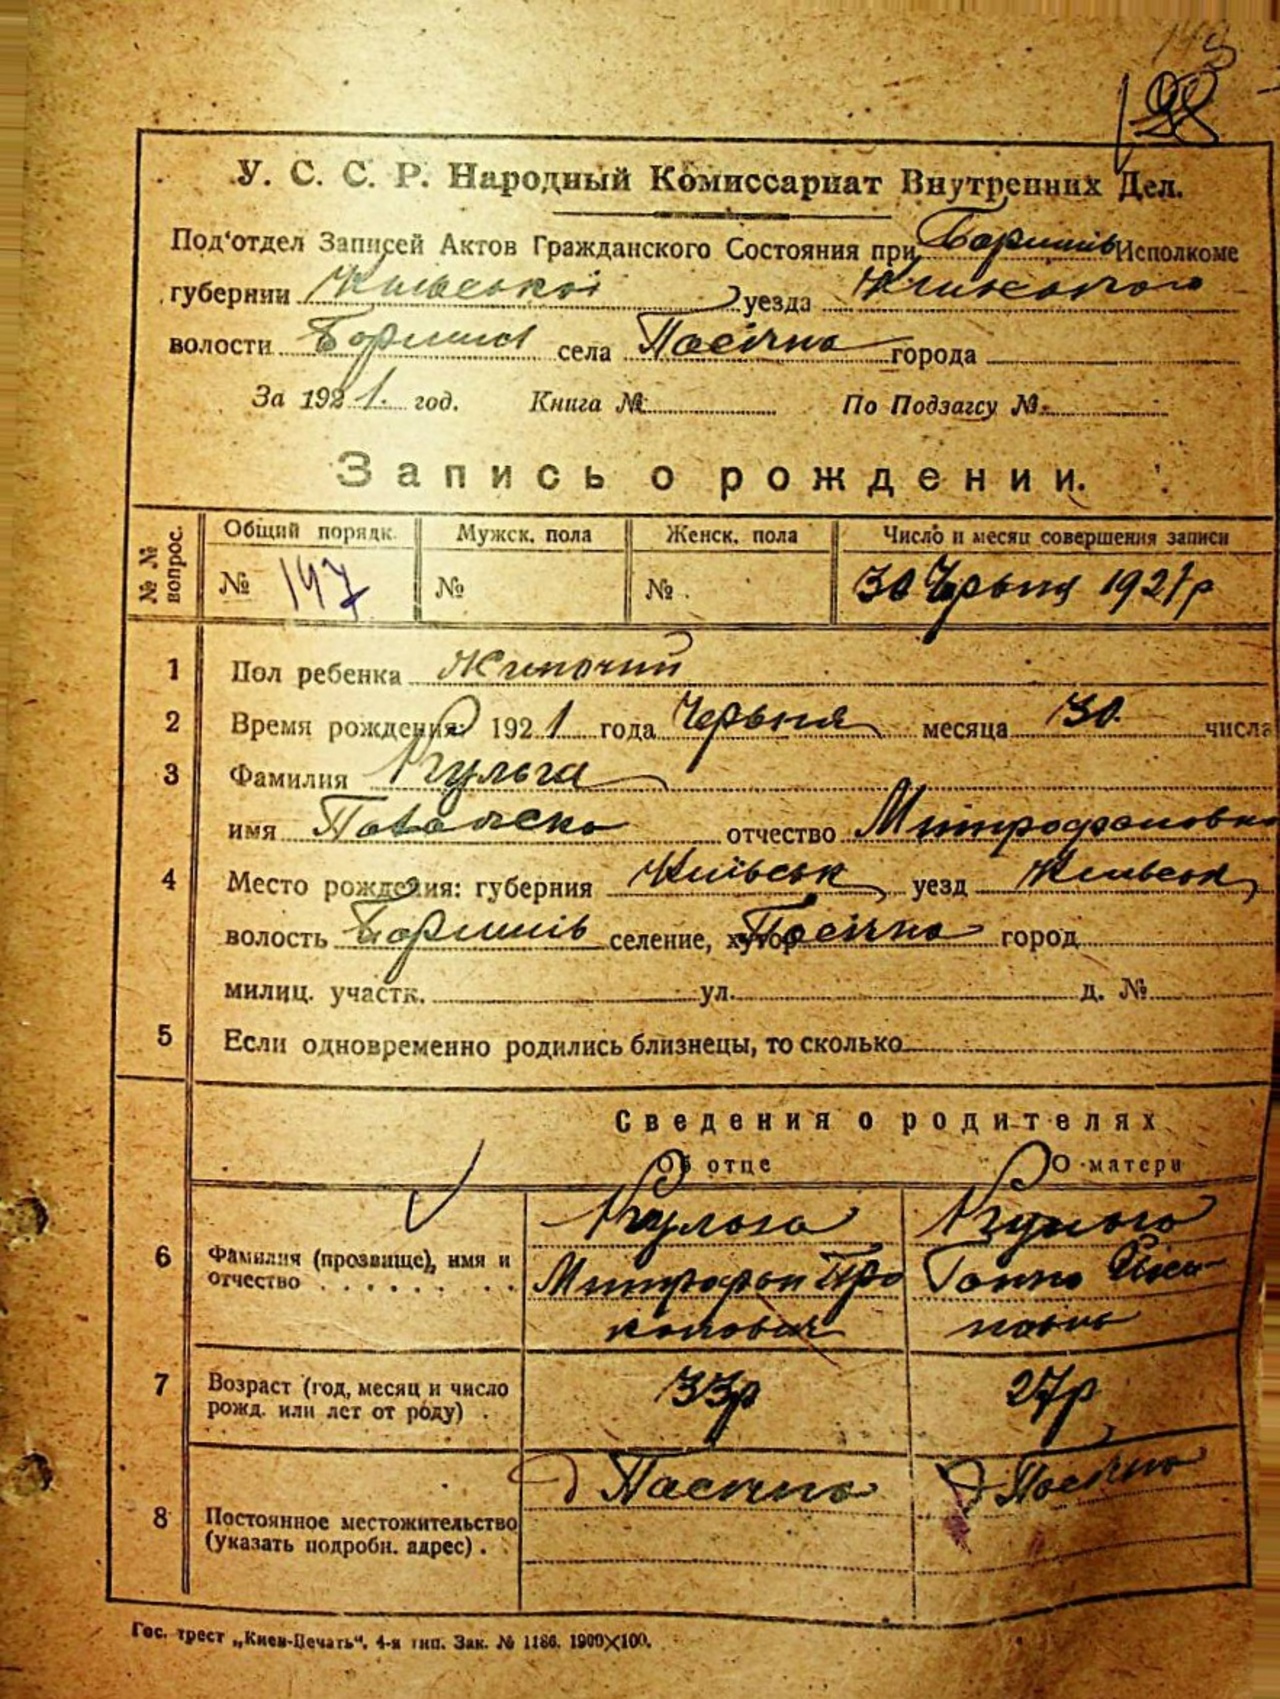 148
У. С. С. Р. Народный Комиссариат Внутренних Дел.
Под'отдел Записей Актов Гражданского Состояния при Исполкоме
губернии Київської уезда
волости села Пасічна города
За 1921. год. Книга № По Подзагсу №
Запись о рождении.
№ № вопрос. Общий порядк. Мужск. пола Женск. пола Число и месяц совершения записи
№ 147 № № 30 Червня 1921 р
1 Пол ребенка Жіночий
2 Время рождения: 1921 года Червня месяца 30. числа
3 Фамилия Кульга
имя отчество Митрофановна
4 Место рождения: губерния Київськ уезд Київськ
волость селение, хутор Пасічна город
милиц. участк. ул. д. №
5 Если одновременно родились близнецы, то сколько
Сведения о родителях
Об отце О матери
Кульга Кульга
6 Фамилия (прозвище), имя и отчество Митрофан Про Ганна
копович
7 Возраст (год, месяц и число рожд. или лет от роду) . 33р 27р
8 Постоянное местожительство (указать подробн. адрес) . д Пасічна д Пасічна
Гос. трест „Киев-Печать“, 4-я тип. Зак. № 1186. 1900×100.